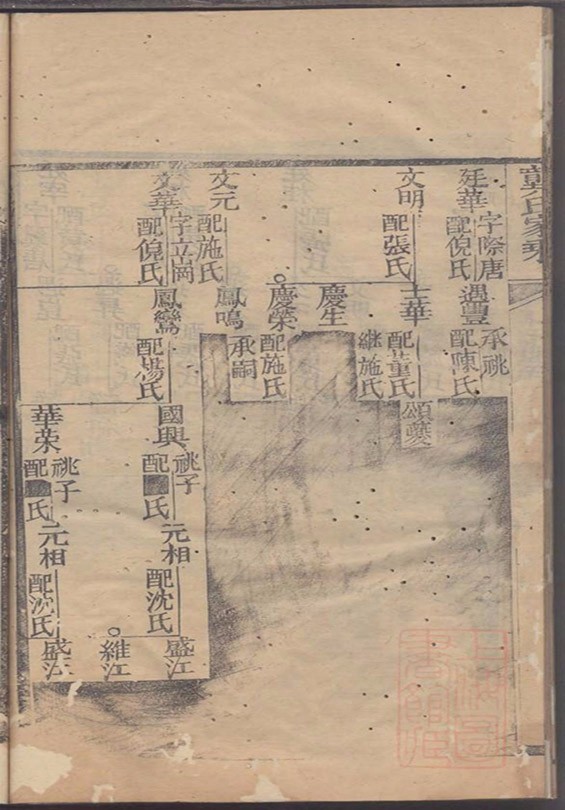 氏家
廷華 字際唐 配倪氏
遇豐 承祧 配陳氏
文明 配張氏
士華 配董氏 継施氏
頌夔
慶生
慶榮 配施氏
文元 配施氏
鳳鳴 承嗣
文華 字立崗 配倪氏
鳳鸞 配楊氏
國興 祧子 配 氏
元相 配沈氏
盛江
維江
華荣 祧子 配 氏
元相 配沈氏
盛江